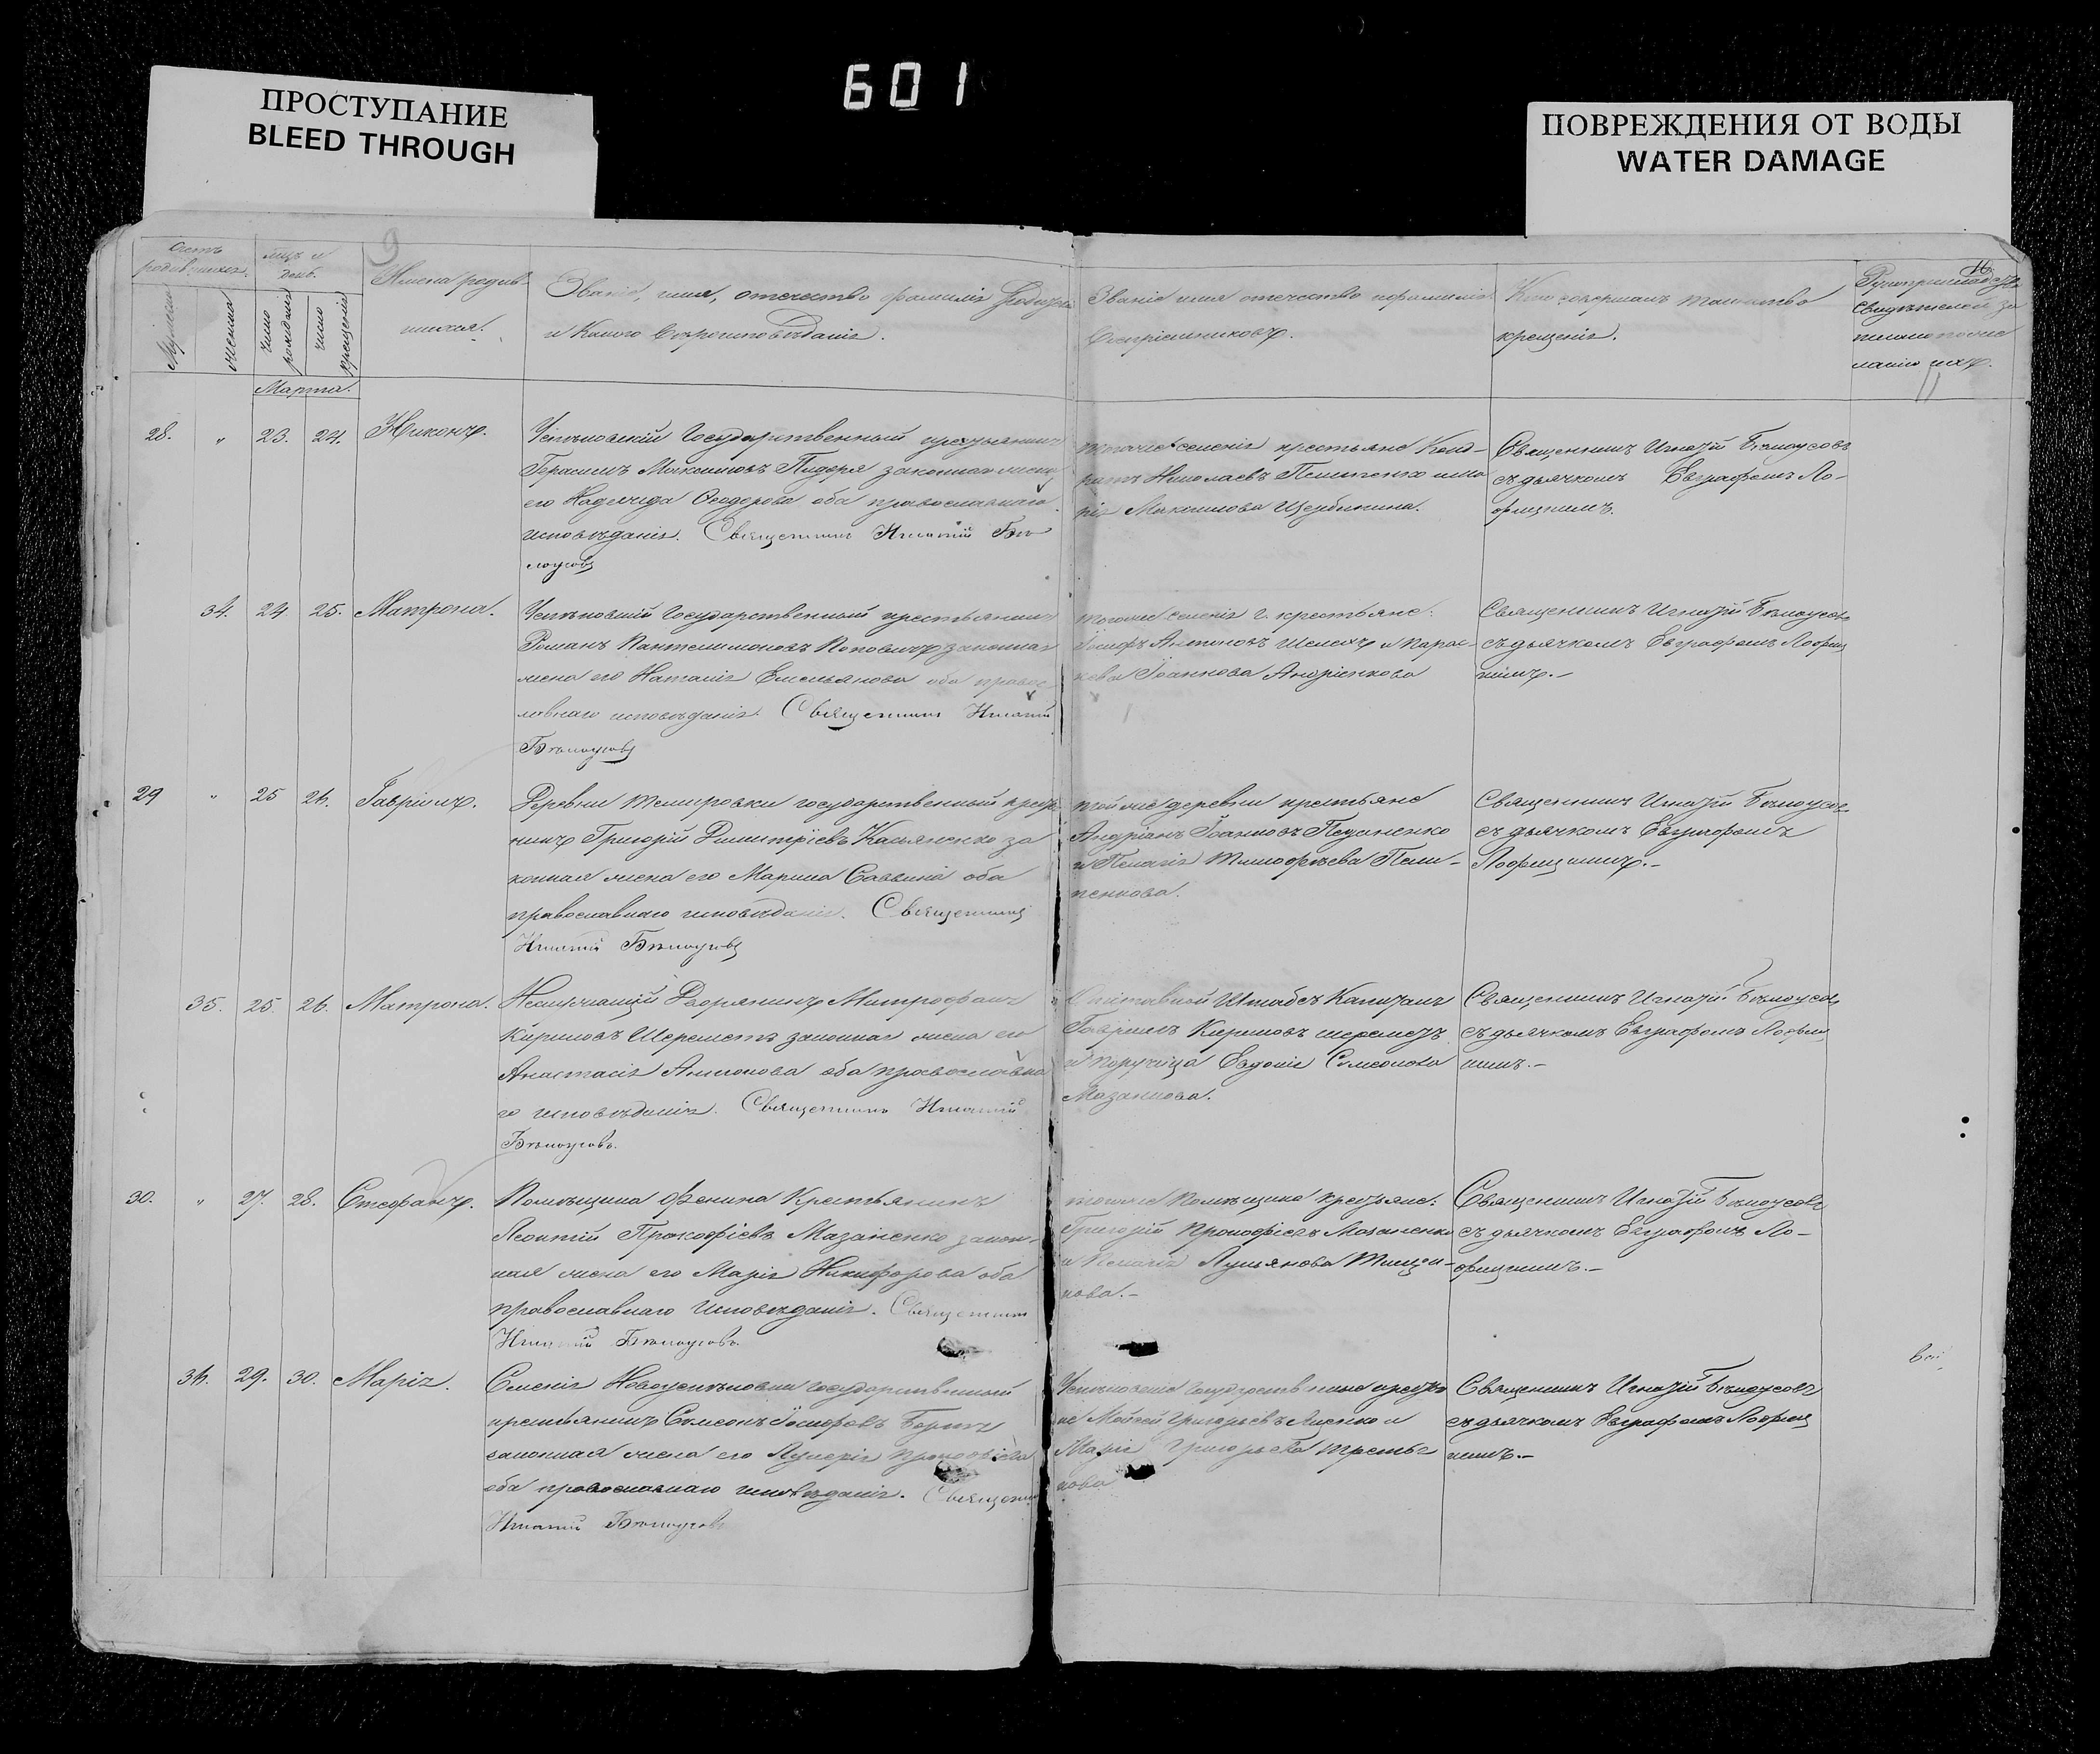 601
ПРОСТУПАНИЕ
BLEED THROUGH
ПОВРЕЖДЕНИЯ ОТ ВОДЫ
WATER DAMAGE
9
Счетъ
родившихся.
мцъ и
день.
Имена родив-
шихся.
Мужеска
женска
число
рожденія
число
крещенія
Марта.
Званіе, имя, отечество фамилія
и Какого Вѣроисповѣданія.
Званіе имя отечество и фамилія
Воспріемниковъ.
Кто совершалъ таинство
крещенія.
Свидѣтелей
28. " 23. 24. Никонъ.
Государственный
Герасимъ Максимовъ законная жена
его Надежда Ѳеодорова оба православнаго
исповѣданія. Священникъ Игнатій Бѣ
лоусовъ
тогоже селенія крестьяне Конд-
ратъ Николаевъ
Максимова Щербинина.
Священникъ Игнатій Бѣлоусовъ
съ дьячкомъ Евграфомъ Ло-
фицкимъ.
34. 24 25. Матрона.
Государственный крестьянинъ
Романъ Пантелимоновъ Поповичъ законная
жена его Наталія Емельянова оба правос-
лавнаго исповѣданія. Священникъ Игнатій
Бѣлоусовъ
тогоже селенія г. крестьяне:
Іосифъ Антоновъ и Парас-
кева Іоаннова Андріенкова
Священникъ Игнатій Бѣлоусовъ
съ дьячкомъ Евграфомъ Лофиц
кимъ.-
29 " 25 26. Гавріилъ.
Деревни государственный
Григорій Димитріевъ Касьяненко за
конная жена его Марина Саввина оба
православнаго исповѣданія. Священникъ
Игнатій Бѣлоусовъ
той же деревни крестьяне
Андріанъ Іоанновъ
и Пелагія Тимофѣева
Священникъ Игнатій Бѣлоусовъ
съ дьячкомъ Евграфомъ
Лофицкимъ.-
35. 25. 26. Матрона.
Дворянинъ Митрофанъ
Кириловъ Шереметъ законная жена его
Анастасія оба православна
го исповѣданія. Священникъ Игнатій
Бѣлоусовъ.
Штабсъ Капитанъ
Гавріилъ Кириловъ Шереметъ
и Евдокія Симеонова
Мазанкова.
Священникъ Игнатій Бѣлоусовъ
съ дьячкомъ Евграфомъ Лофиц
кимъ.-
30. " 27. 28. Стефанъ.
Помѣщика Фенина Крестьянинъ
Леонтій Прокофіевъ Мазаненко закон-
ная жена его Марія Никифорова оба
православнаго исповѣданія. Священникъ
Игнатій Бѣлоусовъ.
тогоже Помѣщика крестьяне:
Григорій Прокофіевъ Мазаненко
и Пелагія Лукьянова Тищен-
кова.-
Священникъ Игнатій Бѣлоусовъ
съ дьячкомъ Евграфомъ Ло-
фицкимъ.-
36. 29. 30. Марія.
Селенія государственный
крестьянинъ Симеонъ Іосифовъ
законная жена его Прокофіева
оба православнаго исповѣданія. Священникъ
Игнатій Бѣлоусовъ
Мойсей Григорьевъ и
Марія Григорьева Третья
кова
Священникъ Игнатій Бѣлоусовъ
съ дьячкомъ Евграфомъ Лофиц
кимъ.-